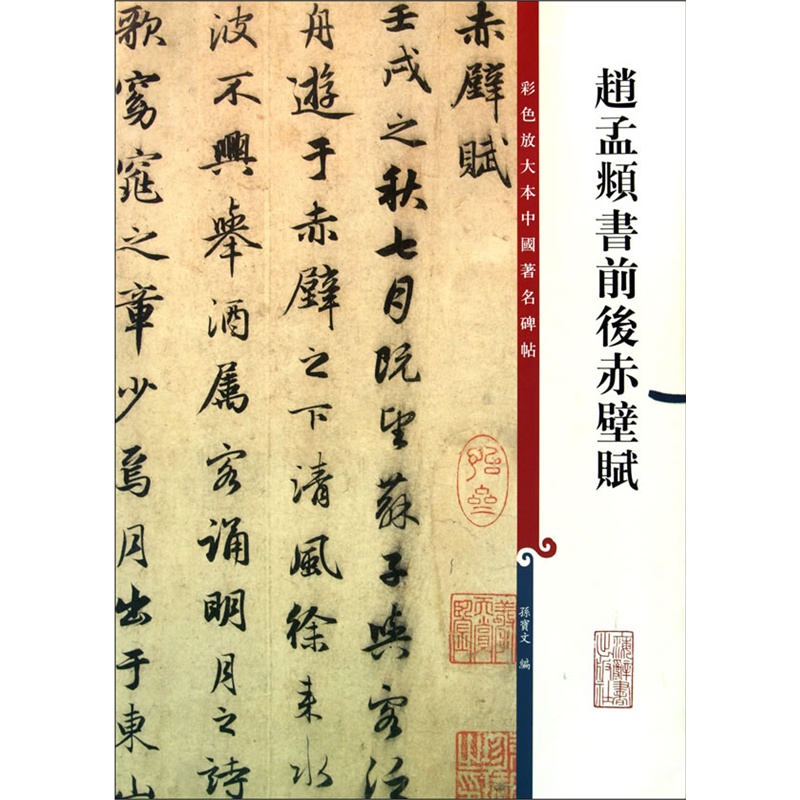 趙孟頫書前後赤壁賦
彩色放大本中國著名碑帖
孫寶文 編
上海辭書出版社
赤壁賦
壬戌之秋七月既望蘇子與客泛
舟遊于赤壁之下清風徐来水
波不興舉酒属客誦明月之詩
歌窈窕之章少焉月出于東山